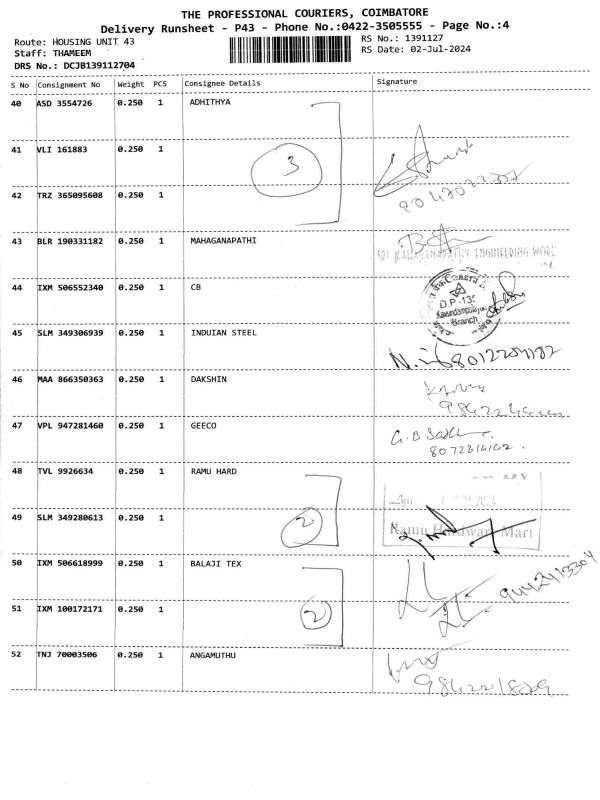 THE PROFESSIONAL COURIERS, COIMBATORE
Delivery Runsheet - P43 - Phone No.:0422-3505555 - Page No.:4
Route: HOUSING UNIT 43
RS No.: 1391127
Staff: THAMEEM
RS Date: 02-Jul-2024
DRS No.: DCJB139112704
S No Consignment No Weight PCS Consignee Details Signature
40 ASD 3554726 0.250 1 ADHITHYA
41 VLI 161883 0.250 1
3
42 TRZ 365095608 0.250 1
43 BLR 190331182 0.250 1 MAHAGANAPATHI
ENGINEERING
44 IXM 506552340 0.250 1 CB
D.P-135
Branch
45 SLM 349306939 0.250 1 INDUIAN STEEL
46 MAA 866350363 0.250 1 DAKSHIN
47 VPL 947281460 0.250 1 GEECO
48 TVL 9926634 0.250 1 RAMU HARD
49 SLM 349280613 0.250 1
2
Ramu Hardware Mart
50 IXM 506618999 0.250 1 BALAJI TEX
9442413304
51 IXM 100172171 0.250 1
2
52 TNJ 70003506 0.250 1 ANGAMUTHU